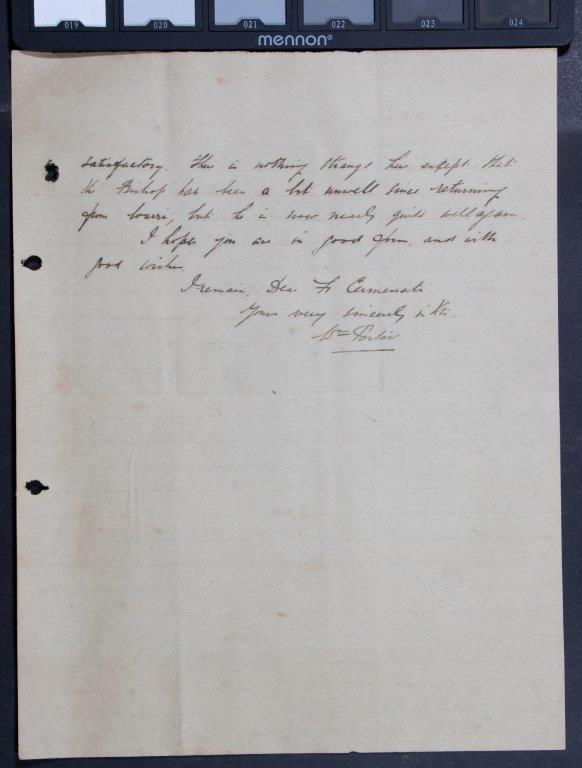 019 020 021 022 023 024
mennon®
satisfactory. There is nothing strange here except that
the Bishop has been a bit unwell since returning
from Lowrie, but he is now nearly quite well again.
I hope you are in good form, and with
good wishes
I remain, Dear Fr Cermenati
Yours very sincerely in Xt.
Wm Porter